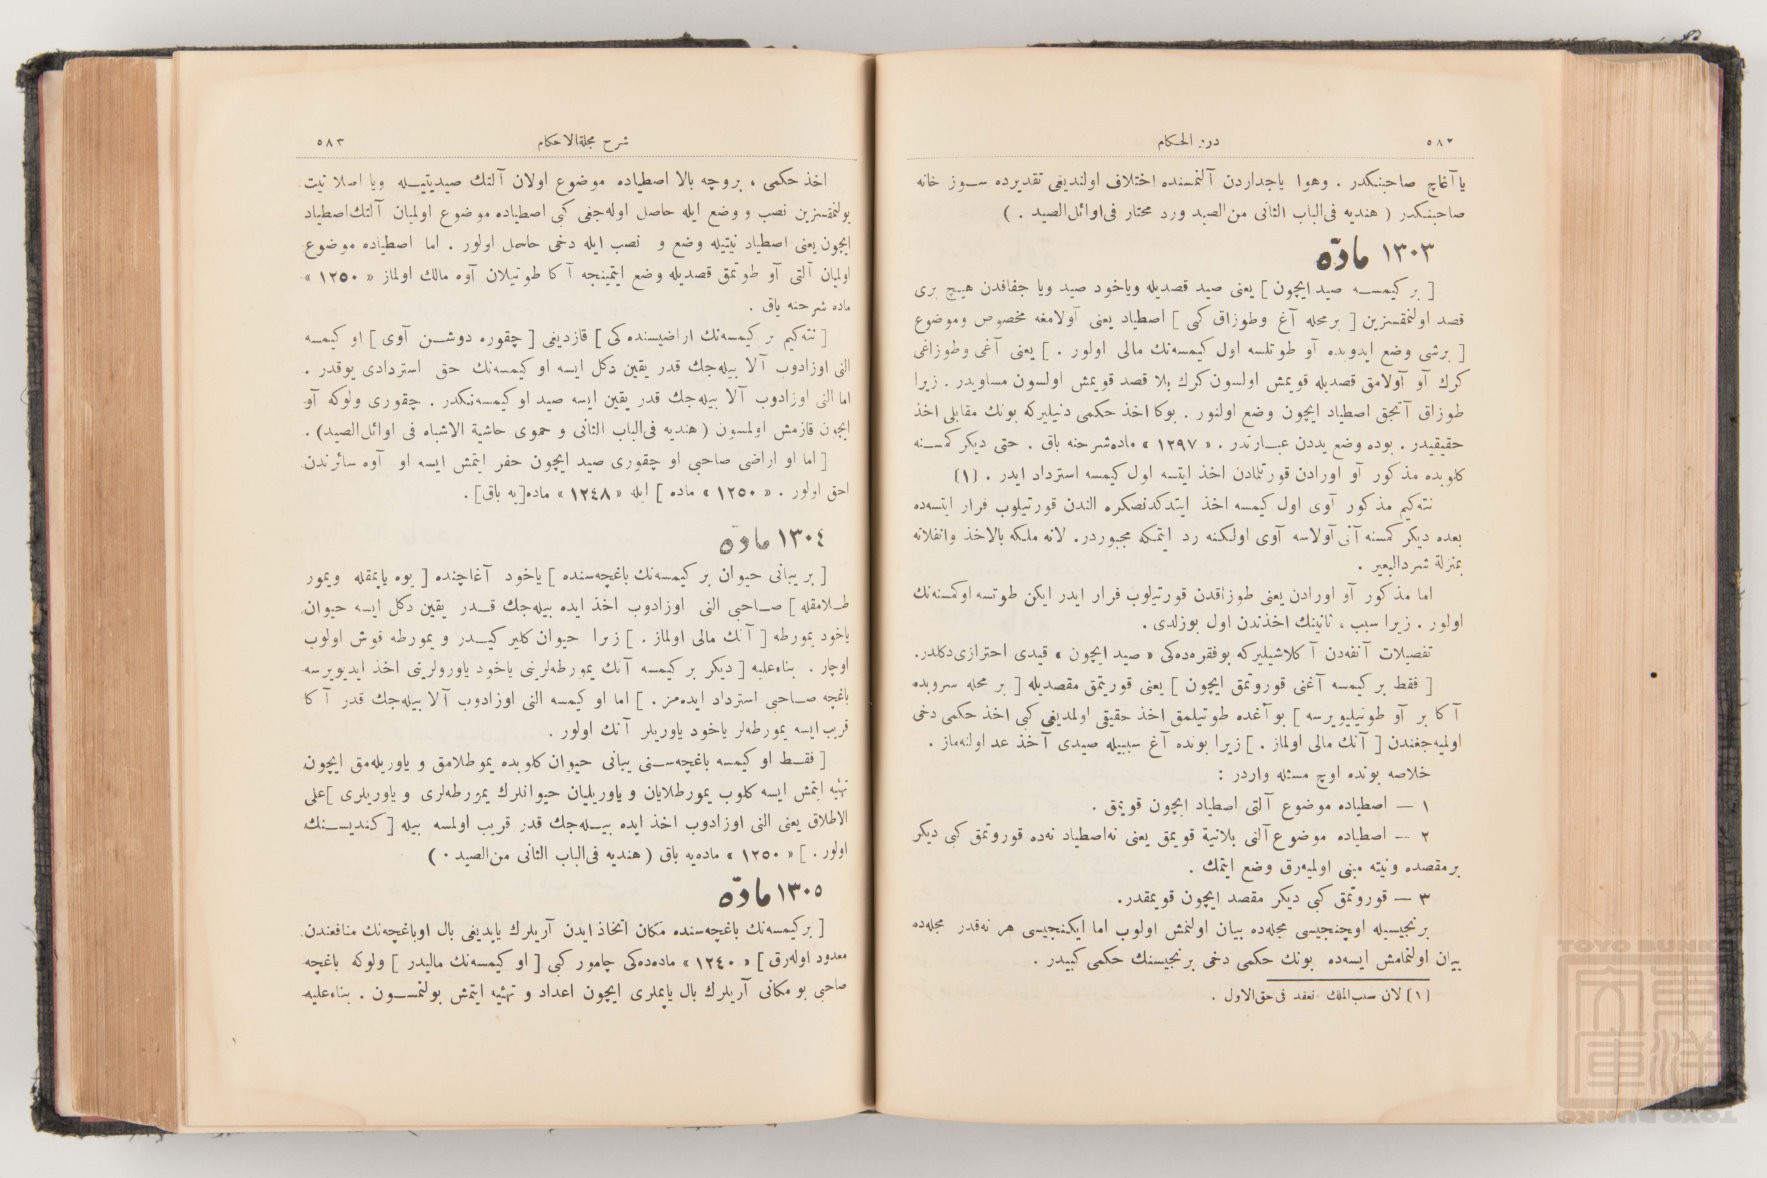 ٥٨٢
درر الحكام
يا آغاچ صاحبنكدر . وهوا ياجداردن آلنمسنده اختلاف اولنديغى تقديرده سوز خانه
صاحبنكدر ( هنديه فى الباب الثانى من الصيد ورد محتار فى اوائل الصيد . )
١٣٠٣ مادّه
[ بر كيمسه صيد ايچون ] يعنى صيد قصديله وياخود صيد ويا جفافدن هيچ برى
قصد اولنمقسزين [ بر محله آغ وطوزاق كبى ] اصطياد يعنى آولامغه مخصوص وموضوع
[ برشى وضع ايدوبده آو طوتلسه اول كيمسه‌نك مالى اولور . ] يعنى آغى وطوزاغى
كرك آو آولامق قصديله قويمش اولسون كرك بلا قصد قويمش اولسون مساويدر . زيرا
طوزاق آنجق اصطياد ايچون وضع اولنور . بوكا اخذ حكمى دنيليركه بونك مقابلى اخذ
حقيقيدر . بوده وضع يددن عبارتدر . « ١٢٩٧ » ماده شرحنه باق . حتى ديكر كمسنه
كلوبده مذكور آو اورادن قورتلمادن اخذ ايتسه اول كيمسه استرداد ايدر . (١)
نته‌كيم مذكور آوى اول كيمسه اخذ ايتدكدنصكره الندن قورتيلوب فرار ايتسه‌ده
بعده ديكر كمسنه آنى آولاسه آوى اولكنه رد ايتمكه مجبوردر. لانه ملكه بالاخذ وانفلاته
بمنزلة شرد البعير .
اما مذكور آو اورادن يعنى طوزاقدن قورتيلوب فرار ايدر ايكن طوتسه اوكمسنه‌نك
اولور . زيرا سبب ، ثانينك اخذندن اول بوزلدى .
تفصيلات آنفه‌دن آكلاشيليركه بوفقره‌ده‌كى « صيد ايچون » قيدى احترازى دكلدر.
[ فقط بر كيمسه آغنى قوروتمق ايچون ] يعنى قوريتمق مقصديله [ بر محله سروبده
آكا بر آو طوتيليويرسه ] بو آغده طوتيلمق اخذ حقيقى اولمديغى كبى اخذ حكمى دخى
اوليه‌جغندن [ آنك مالى اولماز . ] زيرا بونده آغ سببيله صيدى آخذ عد اولنه‌ماز .
خلاصه بونده اوچ مسئله واردر :
١ — اصطياده موضوع آلتى اصطياد ايچون قويمق .
٢ — اصطياده موضوع آلتى بلانية قويمق يعنى نه اصطياد نه‌ده قوروتمق كبى ديكر
بر مقصده ونيته مبنى اوليه‌رق وضع ايتمك .
٣ — قوروتمق كبى ديكر مقصد ايچون قويمقدر.
برنجيسيله اوچنجيسى مجله‌ده بيان اولنمش اولوب اما ايكينجيسى هر نه‌قدر مجله‌ده
بيان اولنمامش ايسه‌ده بونك حكمى دخى برنجيسنك حكمى كبيدر .
(١) لان سبب الملك انعقد فى حق الاول .
شرح مجلة الاحكام
٥٨٣
اخذ حكمى ، بروجه بالا اصطياده موضوع اولان آلتك صيدنيتيله ويا اصلا نيت
بولنمقسزين نصب و وضع ايله حاصل اوله‌جغى كبى اصطياده موضوع اولميان آلتك اصطياد
ايچون يعنى اصطياد نيتيله وضع و نصب ايله دخى حاصل اولور . اما اصطياده موضوع
اولميان آلتى آو طوتمق قصديله وضع ايتمينجه آكا طوتيلان آوه مالك اولماز « ١٢٥٠ »
ماده شرحنه باق .
[ نته‌كيم بر كيمسه‌نك اراضيسنده‌كى ] قازديغى [ چقوره دوشن آوى ] او كيمسه
النى اوزادوب آلا بيله‌جك قدر يقين دكل ايسه او كيمسه‌نك حق استردادى يوقدر .
اما النى اوزادوب آلا بيله‌جك قدر يقين ايسه صيد او كيمسه‌نكدر . چقورى ولوكه آو
ايچون قازمش اولمسون ( هنديه فى الباب الثانى و حموى حاشية الاشباه فى اوائل الصيد) .
[ اما او اراضى صاحبى او چقورى صيد ايچون حفر ايتمش ايسه او آوه سائرندن
احق اولور . « ١٢٥٠ » ماده ] ايله « ١٢٤٨ » ماده[يه باق].
١٣٠٤ مادّه
[ بر يبانى حيوان بر كيمسه‌نك باغچه‌سنده ] ياخود آغاچنده [ يوه ياپمقله ويمور
طلامقله ] صاحبى النى اوزادوب اخذ ايده بيله‌جك قدر يقين دكل ايسه حيوان
ياخود يمورطه [ آنك مالى اولماز . ] زيرا حيوان كلير كيدر و يمورطه قوش اولوب
اوچار . بناءعليه [ ديكر بر كيمسه آنك يمورطه‌لرينى ياخود ياورولرينى اخذ ايديويرسه
باغچه صاحبى استرداد ايده‌مز . ] اما او كيمسه النى اوزادوب آلا بيله‌جك قدر آكا
قريب ايسه يمورطه‌لر ياخود ياوريلر آنك اولور .
[ فقط او كيمسه باغچه‌سنى يبانى حيوان كلوبده يمورطلامق و ياوريله‌مق ايچون
تهئيه ايتمش ايسه كلوب يمورطلايان و ياوريليان حيوانلرك يمورطه‌لرى و ياوريلرى ] على
الاطلاق يعنى النى اوزادوب اخذ ايده بيله‌جك قدر قريب اولمسه بيله [ كنديسنك
اولور . ] « ١٢٥٠ » ماده‌يه باق ( هنديه فى الباب الثانى من الصيد . )
١٣٠٥ مادّه
[ بر كيمسه‌نك باغچه‌سنده مكان اتخاذ ايدن آريلرك ياپديغى بال اوباغچه‌نك منافعندن
معدود اوله‌رق ] « ١٢٤٠ » ماده‌ده‌كى چامور كبى [ او كيمسه‌نك ماليدر ] ولوكه باغچه
صاحبى بو مكانى آريلرك بال ياپملرى ايچون اعداد و تهئيه ايتمش بولنمسون . بناءعليه
TOYO BUNKO
TOYO BUNKO